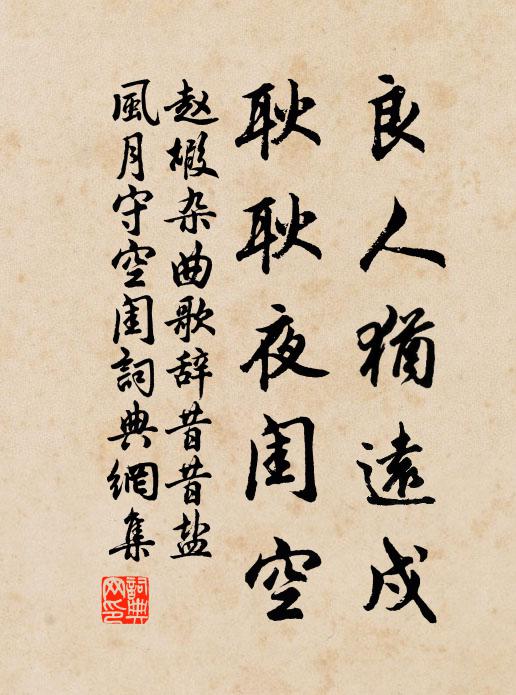 良人猶遠戍
耿耿夜闺空
赵嘏杂曲歌辞昔昔盐
風月守空闺詞典網集
詞典網印